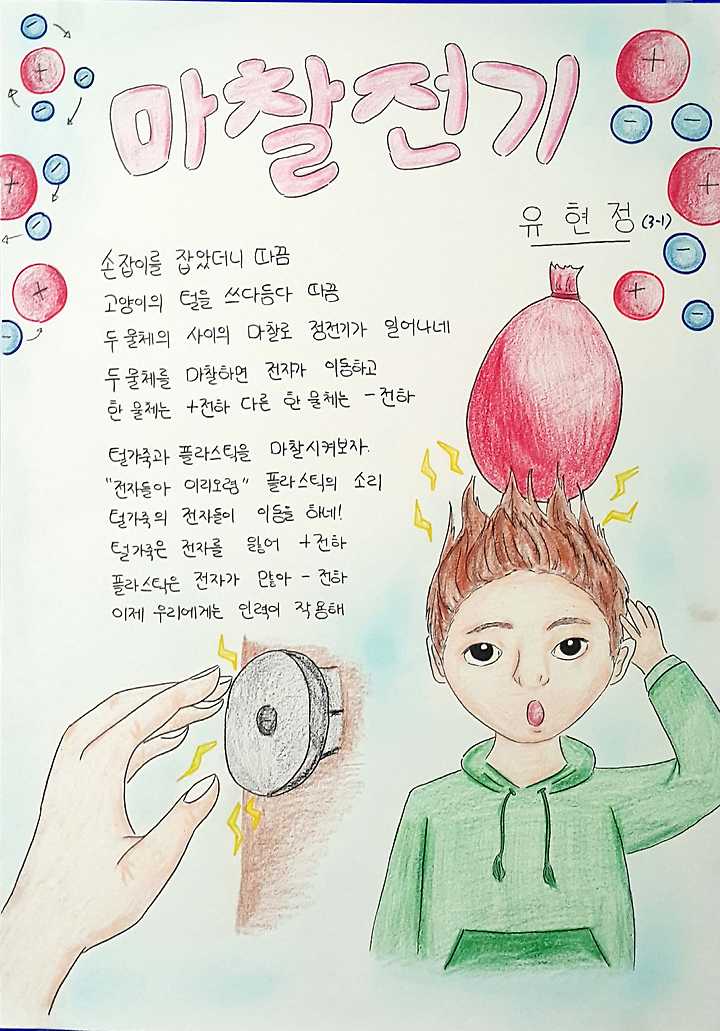 마찰전기
유현정 (3-1)
손잡이를 잡았더니 따끔
고양이의 털을 쓰다듬다 따끔
두 물체의 사이의 마찰로 정전기가 일어나네
두 물체를 마찰하면 전자가 이동하고
한 물체는 +전하 다른 한 물체는 -전하
털가죽과 플라스틱을 마찰시켜보자.
"전자들아 이리오렴" 플라스틱의 소리
털가죽의 전자들이 이동을 하네!
털가죽은 전자를 잃어 +전하
플라스틱은 전자가 많아 -전하
이제 우리에게는 인력이 작용해